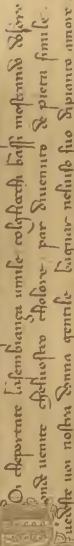 Oi che portate la sembiança umile cogliocchi bassi mostrando dolore
onde uenite chel uostro cholore par diuenuto de pietra simile
Uedeste uoi nostra donna gentile bagnar nel uiso suo di pianto amore